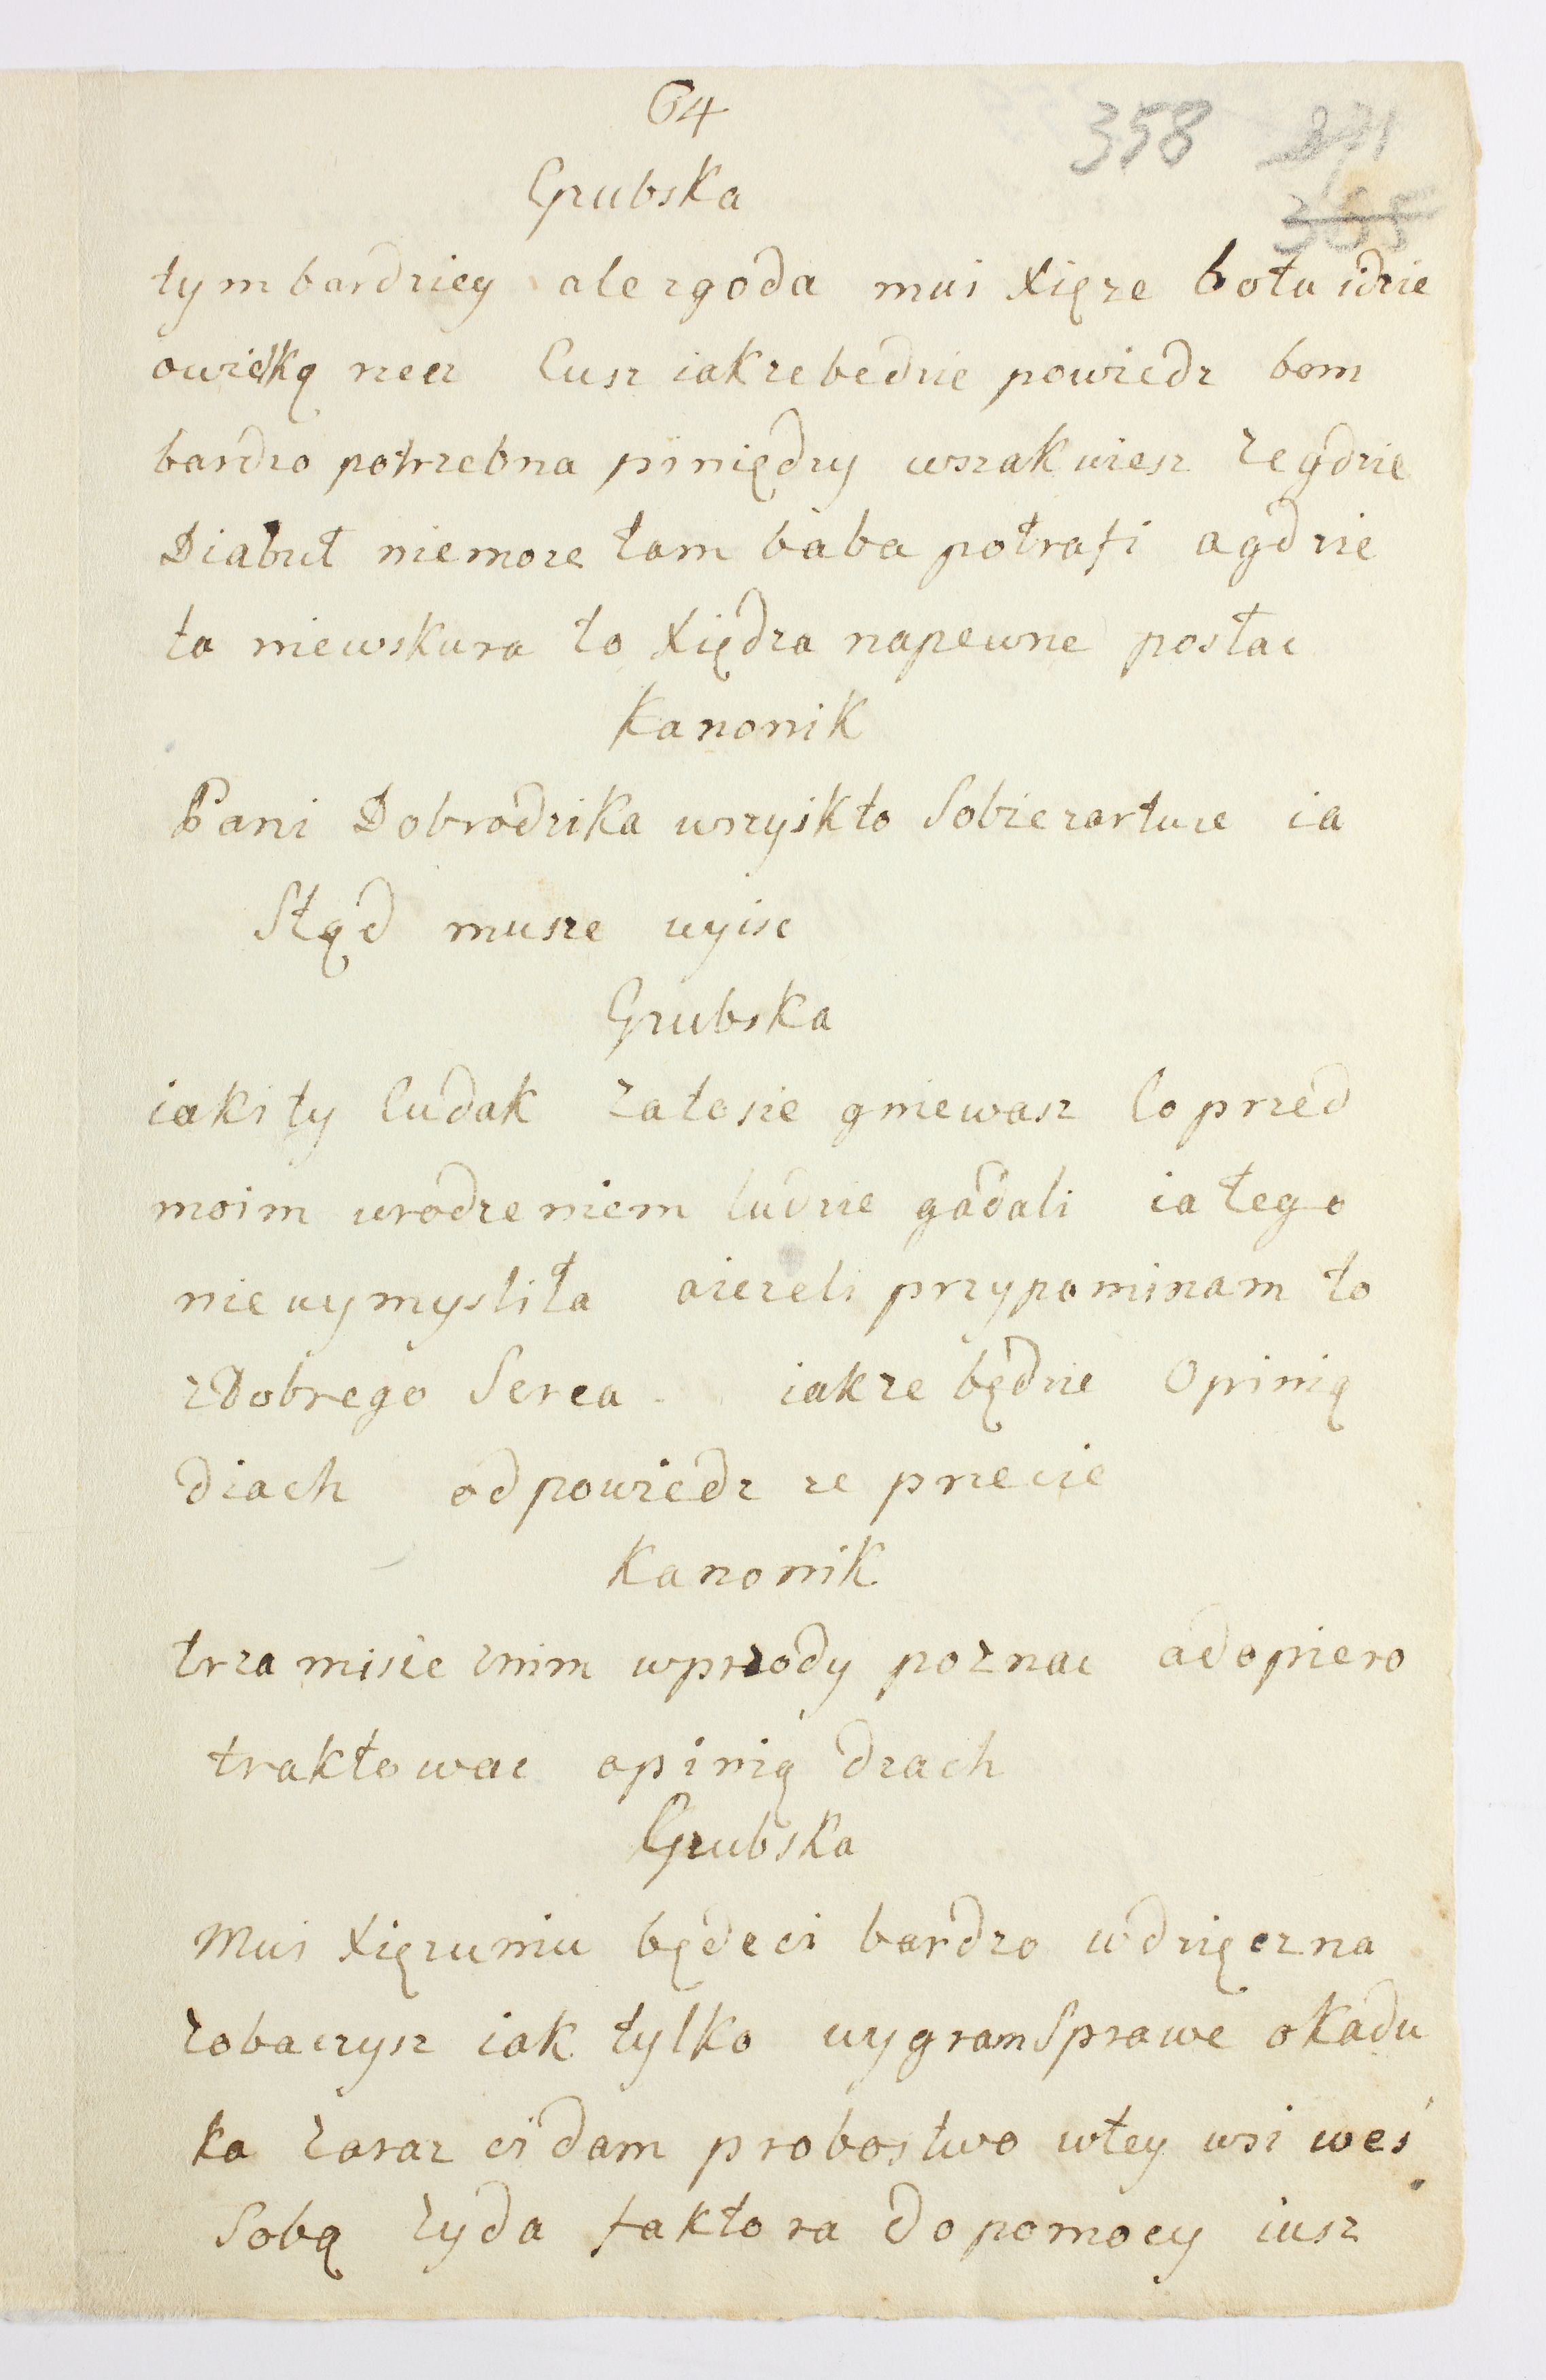 64
358 371
365
Grubska
tym bardziey ale zgoda mui Xięze bo tu idzie
owielką rzecz Cusz iakze bedzie powiedz bom
bardzo potrzebna piniędzy wszak wiesz ze gdzie
Diabuł niemoze tam baba potrafi a gdzie
ta niewskura to Xiędza napewne posłac
Kanonik
Pani Dobrodzika wszyskto Sobie zartuie ia
Stąd musze wyisc
Grubska
iakis ty Cudak za to sie gniewasz Co przed
moim urodzeniem ludzie gadali ia tego
nie wymysliła aiezeli przypominam to
z Dobrego Serca iakze będzie Opinią
diach odpowiedz ze przecie
Kanonik
trza misie znim wprzody poznac a dopiero
traktowac opinią dzach
Grubska
Mui Xięzuniu będe ci bardzo wdzięczna
zobaczysz iak tylko wygram Sprawe okadu
ka zaraz ci dam probostwo wtey wsi weś
Sobą zyda faktora do pomocy iusz